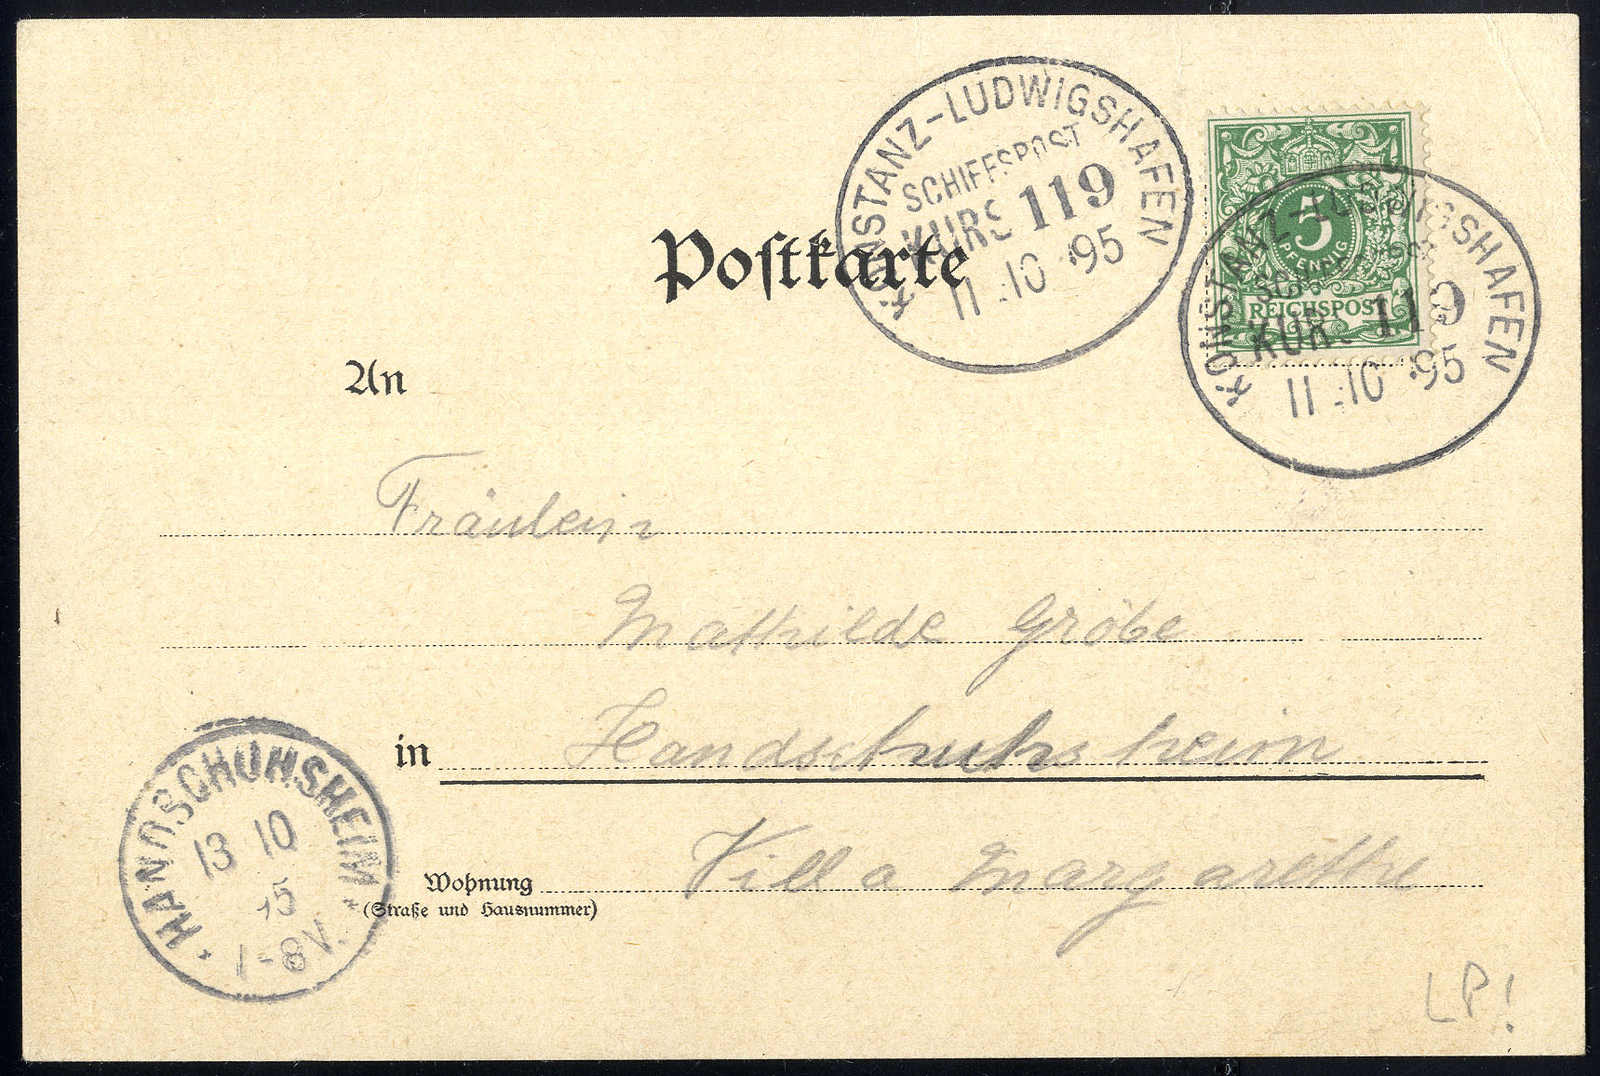 KONSTANZ-LUDWIGSHAFEN
SCHIFFSPOST
KURS 119
11 10 95
5
PFENNIG
REICHSPOST
KONSTANZ-LUDWIGSHAFEN
KURS 119
11 10 95
Postkarte
An
Fräulein
Mathilde Gröbe
in Handschuhsheim
Wohnung Villa Margarethe
(Straße und Hausnummer)
* HANDSCHUHSHEIM *
13 10
-8V.
LP!